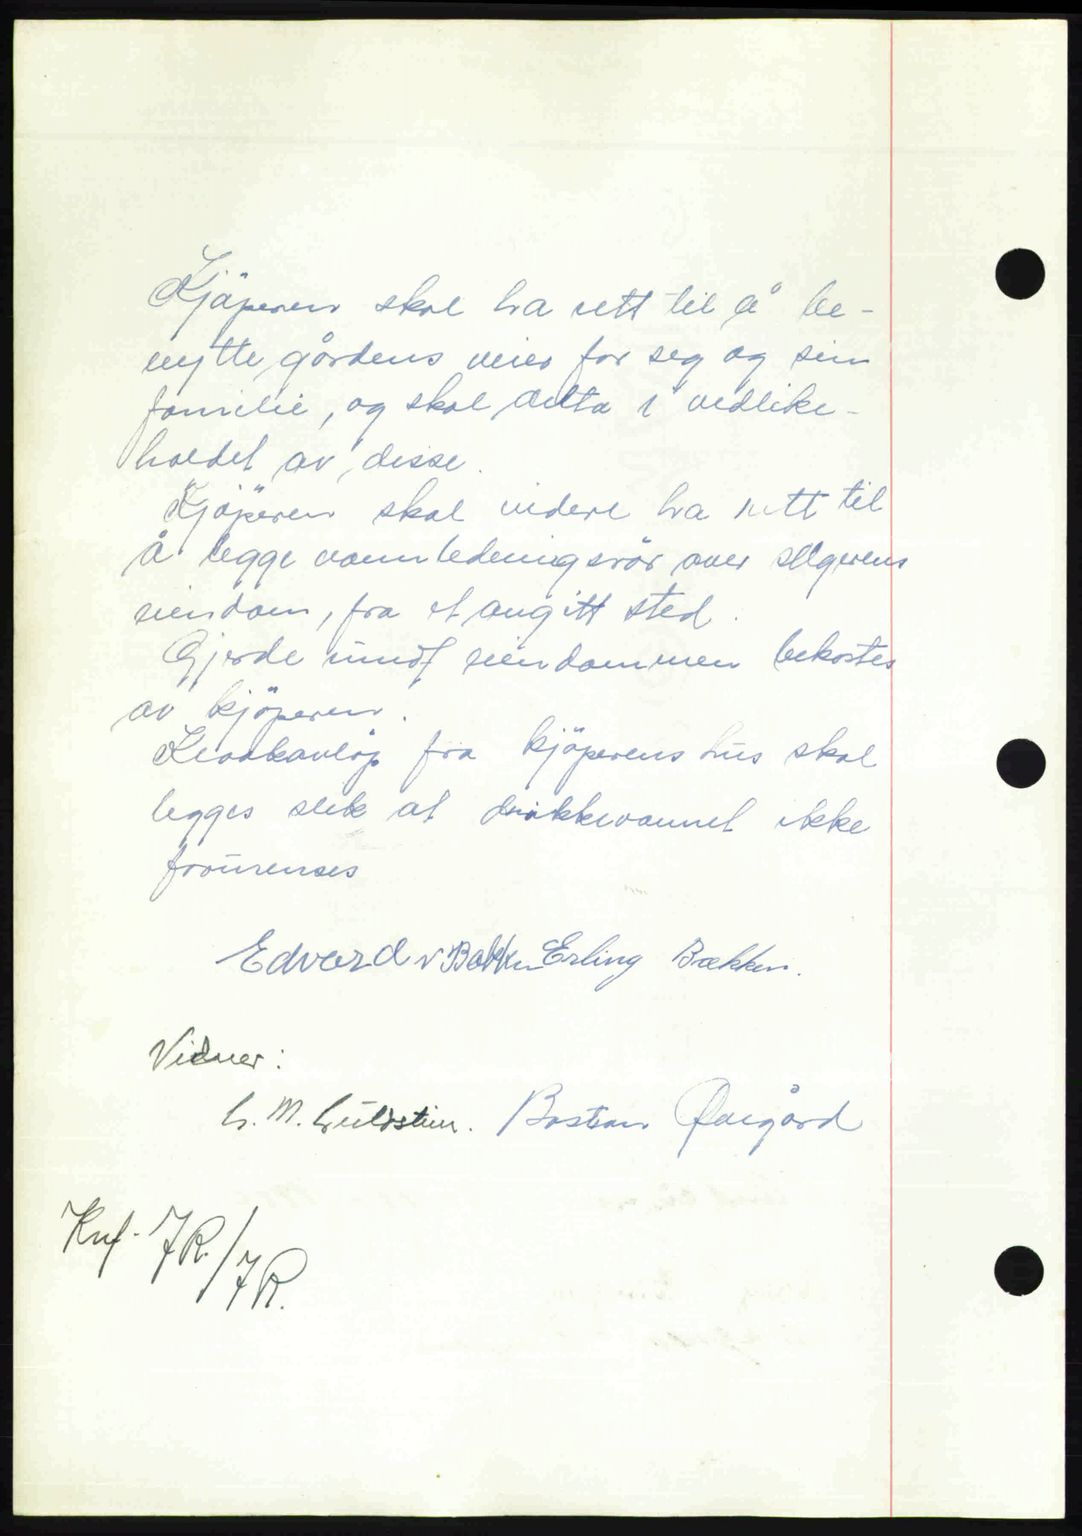 Kjöperen skal ha rett til å be-
nytte gårdens veier for seg og sin
familie, og skal delta i vedlike-
holdet av disse.
Kjöperen skal videre ha rett til
å legge vannledningsrör over selgerens
eiendom, fra et angitt sted.
Gjerde rundt eiendommen bekostes
av kjöperen.
Kloakkavlöp fra kjöperens hus skal
legges slik at drikkevannet ikke
forurenses
Edvard v Bakken Erling Bækken.
Vidner:
M. Bastian Øvergård
Knf. JR./JR.